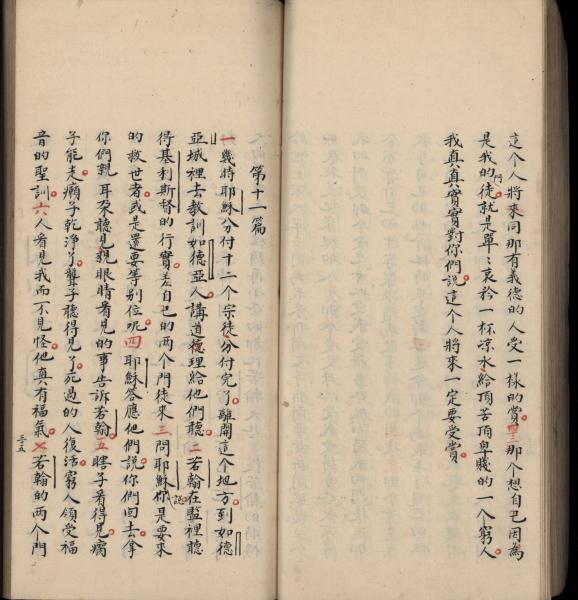 這个人將來同那有義德的人受一樣的賞四二那个想自己因為
是我的門徒就是單單哀矜一杯凉水給頂苦頂卑賤的一个窮人
我真真實實對你們說這个人將來一定要受賞
第十一篇
一幾時耶穌分付十二个宗徒分付完了離開這个地方到如德
亞城裡去教訓如德亞人講道德理給他們聽二若翰在監裡聽
得基利斯督的行實差自己的两个門徒來三問耶穌你是要來
的救世者或是還要等別位呢四耶穌答應他們說你們囘去拿
你們親耳朶聽見親眼睛看見的事告訴若翰五瞎子看得見瘸
子能走癩子乾淨了聾子聽得見了死過的人復活窮人領受福
音的聖訓六人看見我而不見怪他真有福氣七若翰的两个門
三五